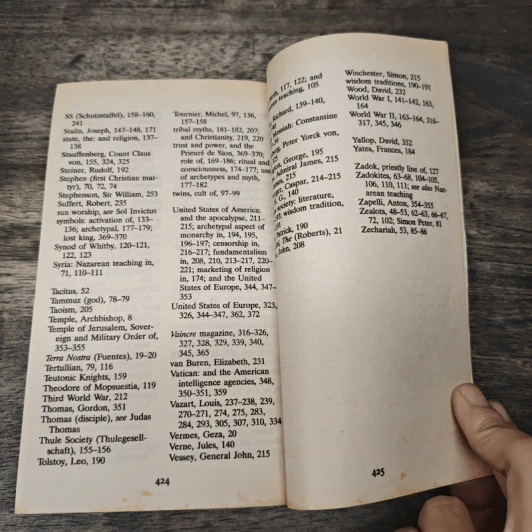 SS (Schutzstaffel), 158–160,
241
Stalin, Joseph, 147–148, 171
state, the: and religion, 137–
138
Stauffenberg, Count Claus
von, 155, 324, 325
Steiner, Rudolf, 192
Stephen (first Christian mar-
tyr), 70, 72, 74
Stephenson, Sir William, 253
Suffert, Robert, 235
sun worship, see Sol Invictus
symbols: activation of, 133–
136; archetypal, 177–179;
lost king, 369–370
Synod of Whitby, 120–121,
122, 123
Syria: Nazarean teaching in,
71, 110–111
Tacitus, 52
Tammuz (god), 78–79
Taoism, 205
Temple, Archbishop, 8
Temple of Jerusalem, Sover-
eign and Military Order of,
353–355
Terra Nostra (Fuentes), 19–20
Tertullian, 79, 116
Teutonic Knights, 159
Theodore of Mopsuestia, 119
Third World War, 212
Thomas, Gordon, 351
Thomas (disciple), see Judas
Thomas
Thule Society (Thulegesell-
schaft), 155–156
Tolstoy, Leo, 190
Tournier, Michel, 97, 136,
157–158
tribal myths, 181–182, 207;
and Christianity, 219, 220
trust and power, and the
Prieuré de Sion, 369–370;
role of, 169–186; ritual and
consciousness, 174–177; use
of archetypes and myth,
177–182
twins, cult of, 97–99
United States of America:
and the apocalypse, 211–
215; archetypal aspect of
monarchy in, 194, 195,
196–197; censorship in,
216–217; fundamentalism
in, 208, 210, 213–217, 220–
221; marketing of religion
in, 174; and the United
States of Europe, 344, 347–
353
United States of Europe, 323,
326, 344–347, 362, 372
Vaincre magazine, 316–326,
327, 328, 329, 339, 340,
345, 365
van Buren, Elizabeth, 231
Vatican: and the American
intelligence agencies, 348,
350–351, 359
Vazart, Louis, 237–238, 239,
270–271, 274, 275, 283,
284, 293, 305, 307, 310, 334
Vermes, Geza, 20
Verne, Jules, 140
Vessey, General John, 215
424
117, 122; and
teaching, 105
Richard, 139–140,
Messiah: Constantine
Peter Yorck von,
George, 195
Admiral James, 215
215
Caspar, 214–215
G., 140
society: literature,
wisdom tradition,
Patrick, 190
The (Roberts), 21
John, 208
Winchester, Simon, 215
wisdom traditions, 190–191
Wood, David, 232
World War I, 141–142, 163,
164
World War II, 163–164, 316–
317, 345, 346
Yallop, David, 352
Yates, Frances, 184
Zadok, priestly line of, 127
Zadokites, 63–68, 104–105,
106, 110, 111; see also Naz-
arean teaching
Zapelli, Anton, 354–355
Zealots, 48–53, 62–63, 66–67,
72, 102; Simon Peter, 81
Zechariah, 53, 85–86
425